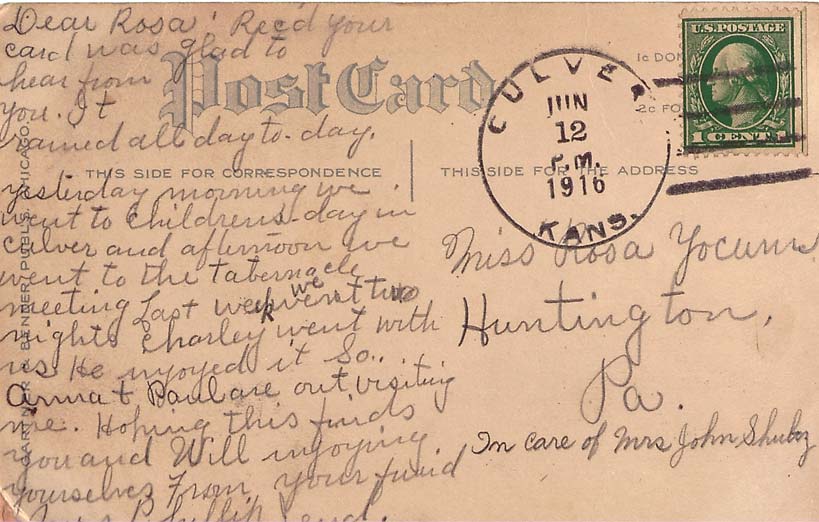 Dear Rosa! Rec'd your
card was glad to
hear from
you. It
rained all day to-day.
yesterday morning we
went to Childrens-day in
Culver and afternoon we
went to the tabernacle
meeting Last week we went two
nights Charley went with
us He injoyed it So..
Anna + Paul are out visiting
me. Hoping this finds
you and Will injoying
yourselves From your friend
Post Card
THIS SIDE FOR CORRESPONDENCE
THIS SIDE FOR THE ADDRESS
GARTNER & BENDER, PUBLS. CHICAGO
CULVER
JUN
12
P.M.
1916
KANS.
U.S. POSTAGE
1 CENT 1
1c
2c FO
Miss Rosa Yocum
Huntington,
Pa.
In care of Mrs John